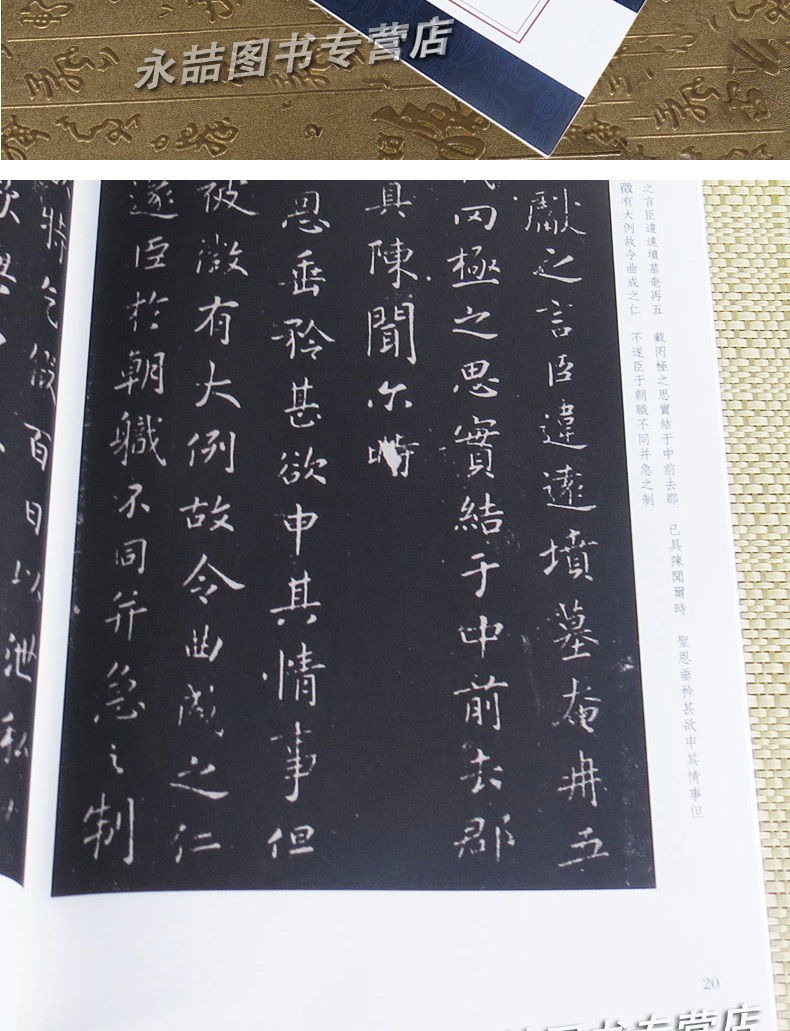 永喆图书专营店
之言臣違遠墳墓奄再五
載罔極之思實結于中前去郡
已具陳聞爾時
聖恩垂矜甚欲申其情事但
微有大例故令曲成之仁
不遂臣于朝職不同并急之制
獻之言臣違遠墳墓奄冉五
罔極之思實結于中前去郡
具陳聞尔時
恩垂矜甚欲申其情事但
被徵有大例故令曲成之仁
遂臣於朝職不同并急之制
特乞假百日以泄私
20
图书专营店